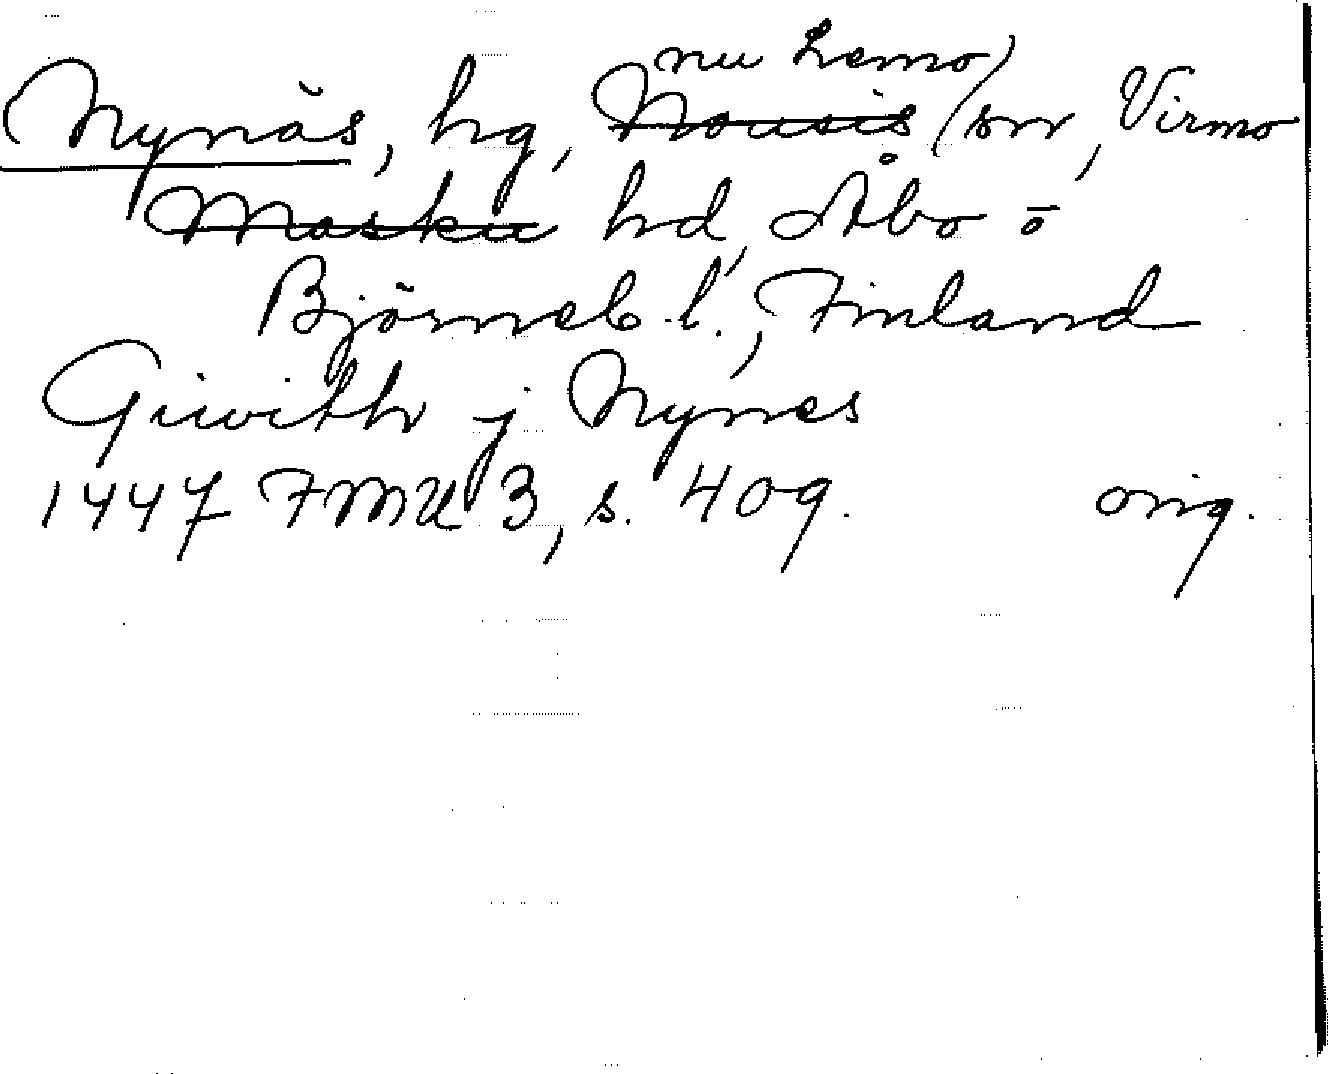 nu Lemo)
Nynäs, hg, Nousis (sn, Virmo
Masku hd, Åbo o
Björneb. l., Finland
Giwith j Nynes
1447 FMU 3, s. 409. orig.